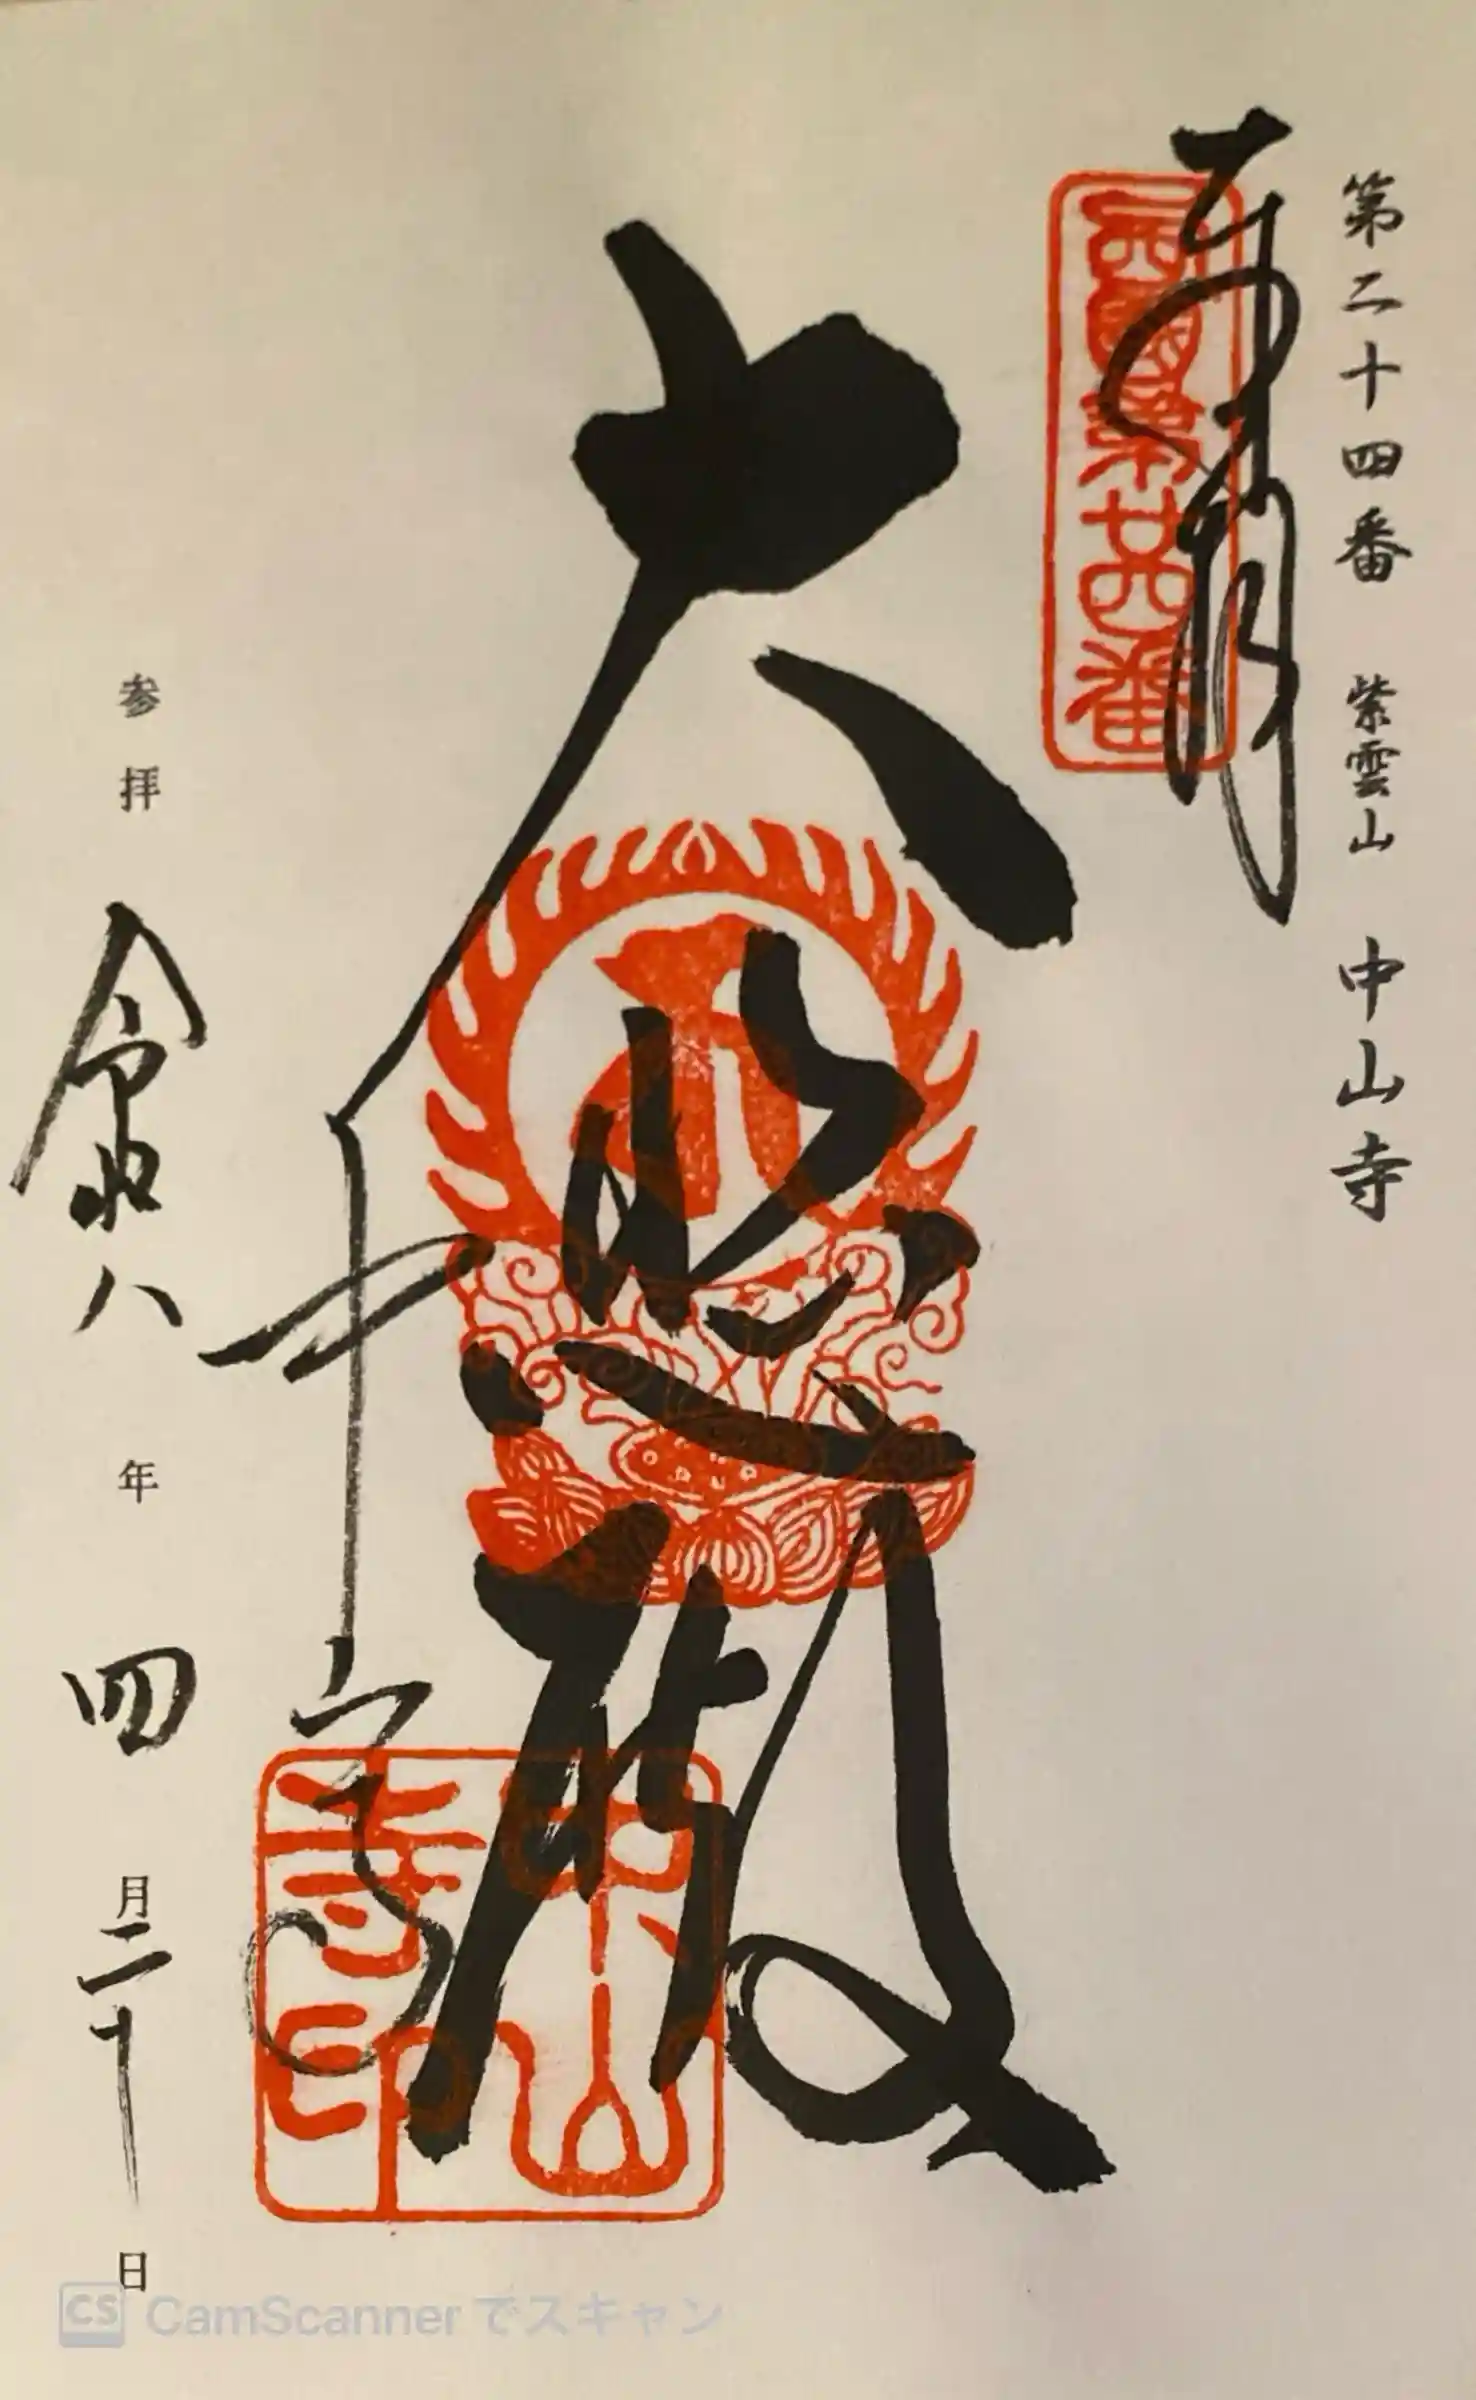 第二十四番 紫雲山 中山寺
奉拝
西國第廿四番
大悲殿
中山寺
中山寺印
参拝 令和八年四月二十日
CS CamScanner でスキャン